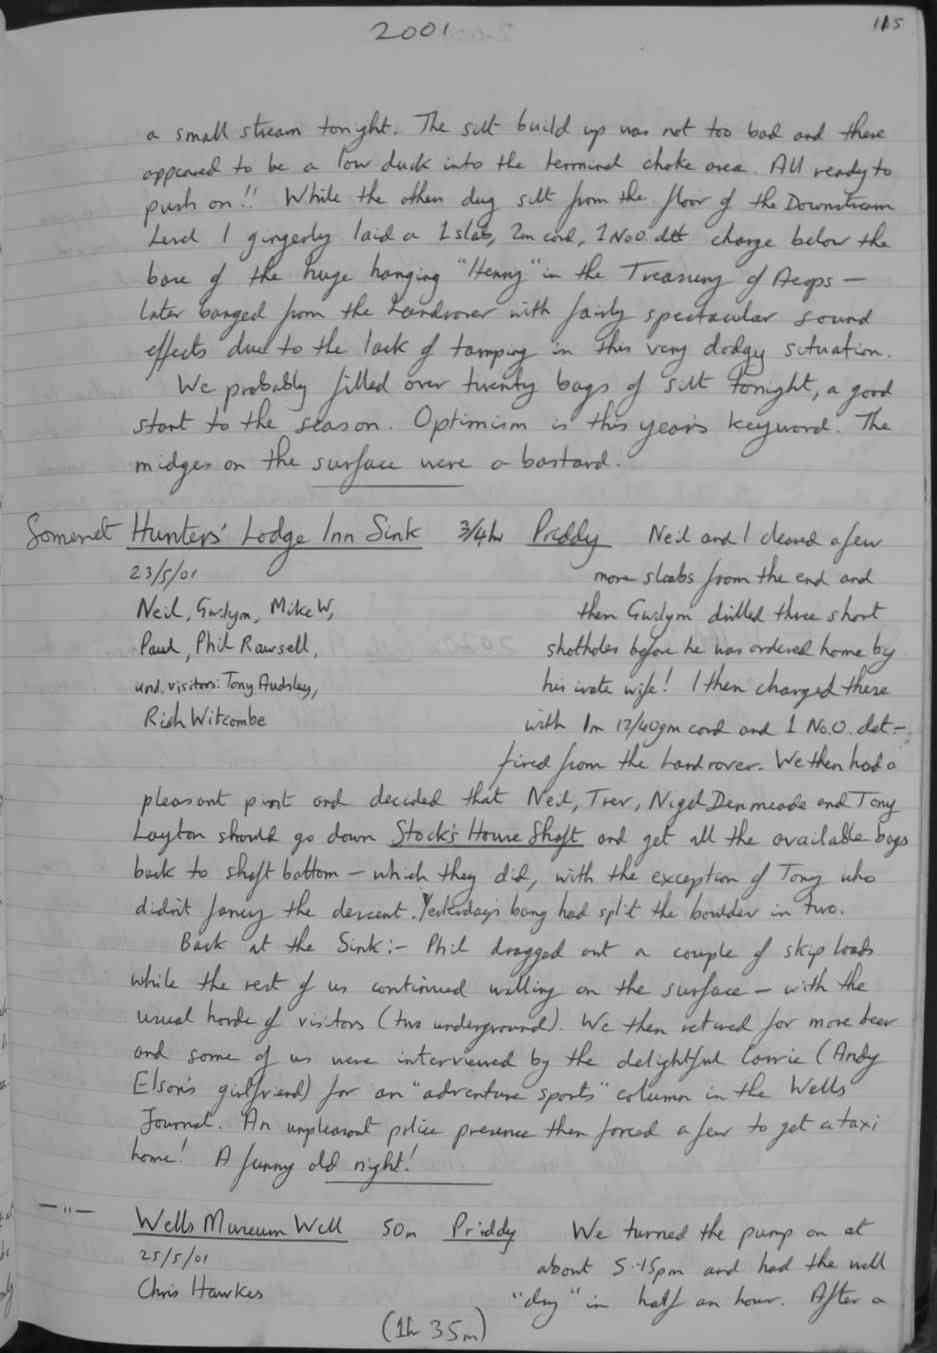 2001
115
a small stream tonight. The silt build up was not too bad and there
appeared to be a low duck into the terminal choke area. All ready to
push on!! While the others dug silt from the floor of the Downstream
Level I gingerly laid a 1 slab, 2m cord, 1 No 0. det charge below the
base of the huge hanging "Henry" in the Treasury of Aeops —
later banged from the Landrover with fairly spectacular sound
effects due to the lack of tamping in this very dodgy situation.
We probably filled over twenty bags of silt tonight, a good
start to the season. Optimism is this year's keyword. The
midges on the surface were a bastard.
Somerset Hunters' Lodge Inn Sink 3/4hr Priddy Neil and I cleared a few
23/5/01 more slabs from the end and
Neil, Gwilym, Mike W, then Gwilym drilled three short
Paul, Phil Rawsell, shotholes before he was ordered home by
und. visitors: Tony Audsley, his irate wife! I then charged these
Rich Witcombe with 1m 12/40gm cord and 1 No.0. det –
fired from the Landrover. We then had a
pleasant pint and decided that Neil, Trev, Nigel Denmeade and Tony
Layton should go down Stock's House Shaft and get all the available bags
back to shaft bottom – which they did, with the exception of Tony who
didn't fancy the descent. Yesterday's bang had split the boulder in two.
Back at the Sink:- Phil dragged out a couple of skip loads
while the rest of us continued walling on the surface – with the
usual horde of visitors (two underground). We then retired for more beer
and some of us were interviewed by the delightful Lorrie (Andy
Elson's girlfriend) for an "adventure sports" column in the Wells
Journal. An unpleasant police presence then forced a few to get a taxi
home! A funny old night!
—"— Wells Museum Well 50m Priddy We turned the pump on at
25/5/01 about 5.15pm and had the well
Chris Hawkes "dry" in half an hour. After a
(1h 35m)